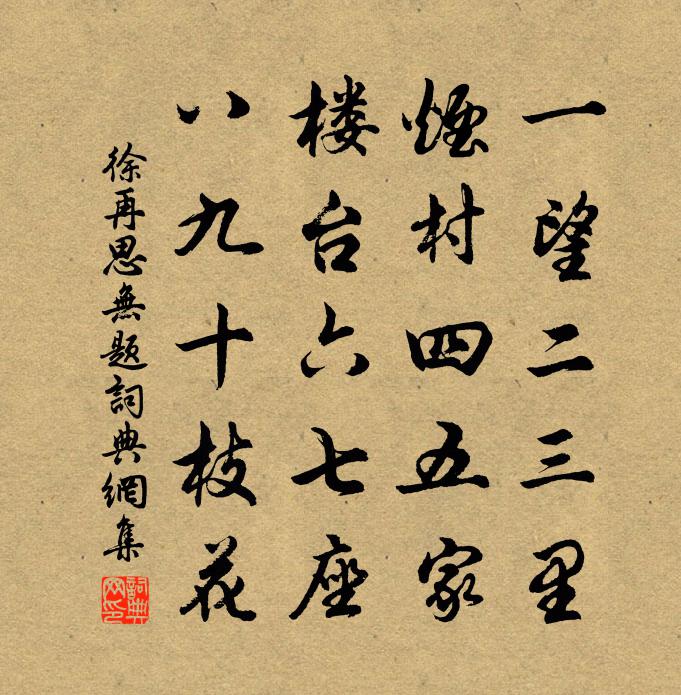 一望二三里
煙村四五家
楼台六七座
八九十枝花
徐再思無题詞典網集
詞典网印